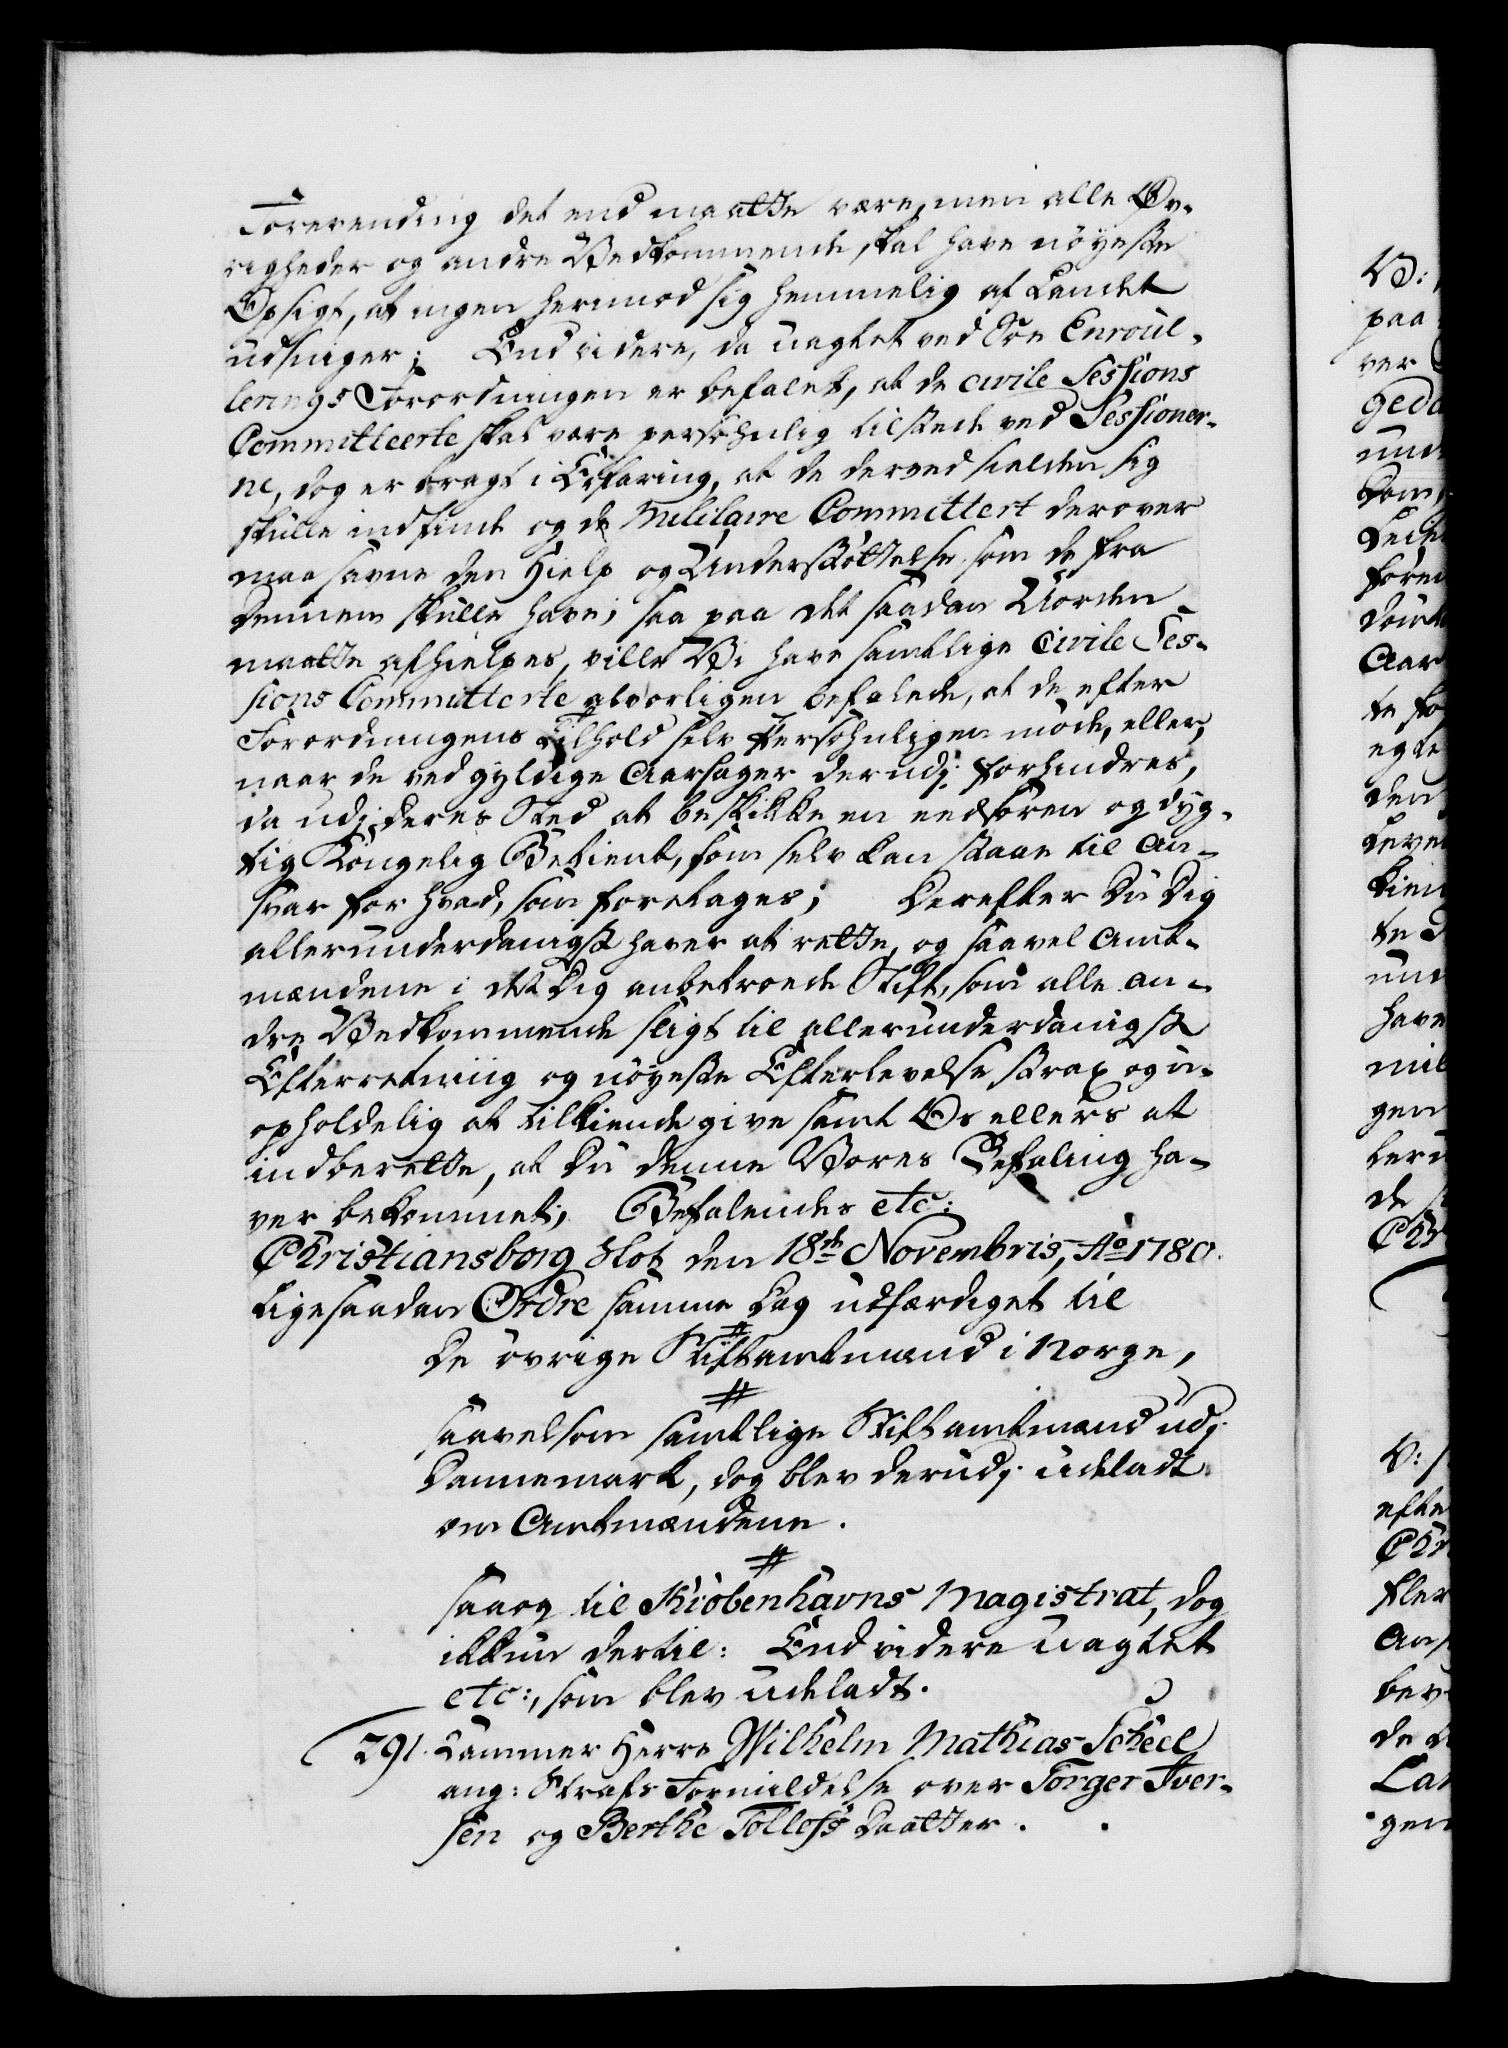 Forevending det end maatte være, men alle Øv-
righeder og andre Vedkommende skal have nöyeste
Opsigt, at ingen herimod sig hemmelig af Landet
udsniger; End videre, da uagtet ved Søe Enroul-
lerings Forordningen er befalet, at de civile Sessions
Committeerte skal være persohnlig tilstede ved Sessioner-
ne, dog er bragt i Erfaring, at de derved sielden sig
skulle indfinde og de Militaire Committert derover
maa savne den Hielp og Understöttelse som de fra
dennem skulle have; saa paa det saadan Uorden
maatte afhielpes, ville Vi have samtlige Civile Ses-
sions Committerte alvorligen befalede, at de efter
Forordningens Tilhold selv Persohnligen möde, eller,
naar de ved gyldige Aarsager derudj forhindres,
da udj deres Sted at beskikke en eedsoren og dyg-
tig Kongelig Betient, som selv kan staae til An-
svar for hvad, som foretages; Derefter Du Dig
allerunderdanigst haver at rette, og saavel Amt-
mændene i det Dig anbetroede Stift, som alle an-
dre Vedkommende sligt til allerunderdanigst
Efterretning og nöyeste Efterlevelse strax og u-
opholdelig at tilkiende give samt Os ellers at
indberette, at Du denne Vores Befaling ha-
ver bekommet; Befalendes etc:
Christiansborg Slot den 18de Novembris, Ao 1780.
Ligesaadan Ordre samme Dag udfærdiget til
De övrige Stiftamtmænd i Norge,
#
saavelsom samtlige Stiftamtmænd udj
Dannemark, dog blev derudj udeladt
om Amtmændene.
#
saaog til Kiöbenhavns Magistrat, dog
ikkun dertil: End videre uagtet
etc:, som blev udeladt.
291. Cammer Herre Wilhelm Mathias Scheel
ang: Strafs Formildelse over Torger Iver-
sen og Berthe Tollefs Daatter.
V:
paa
ver